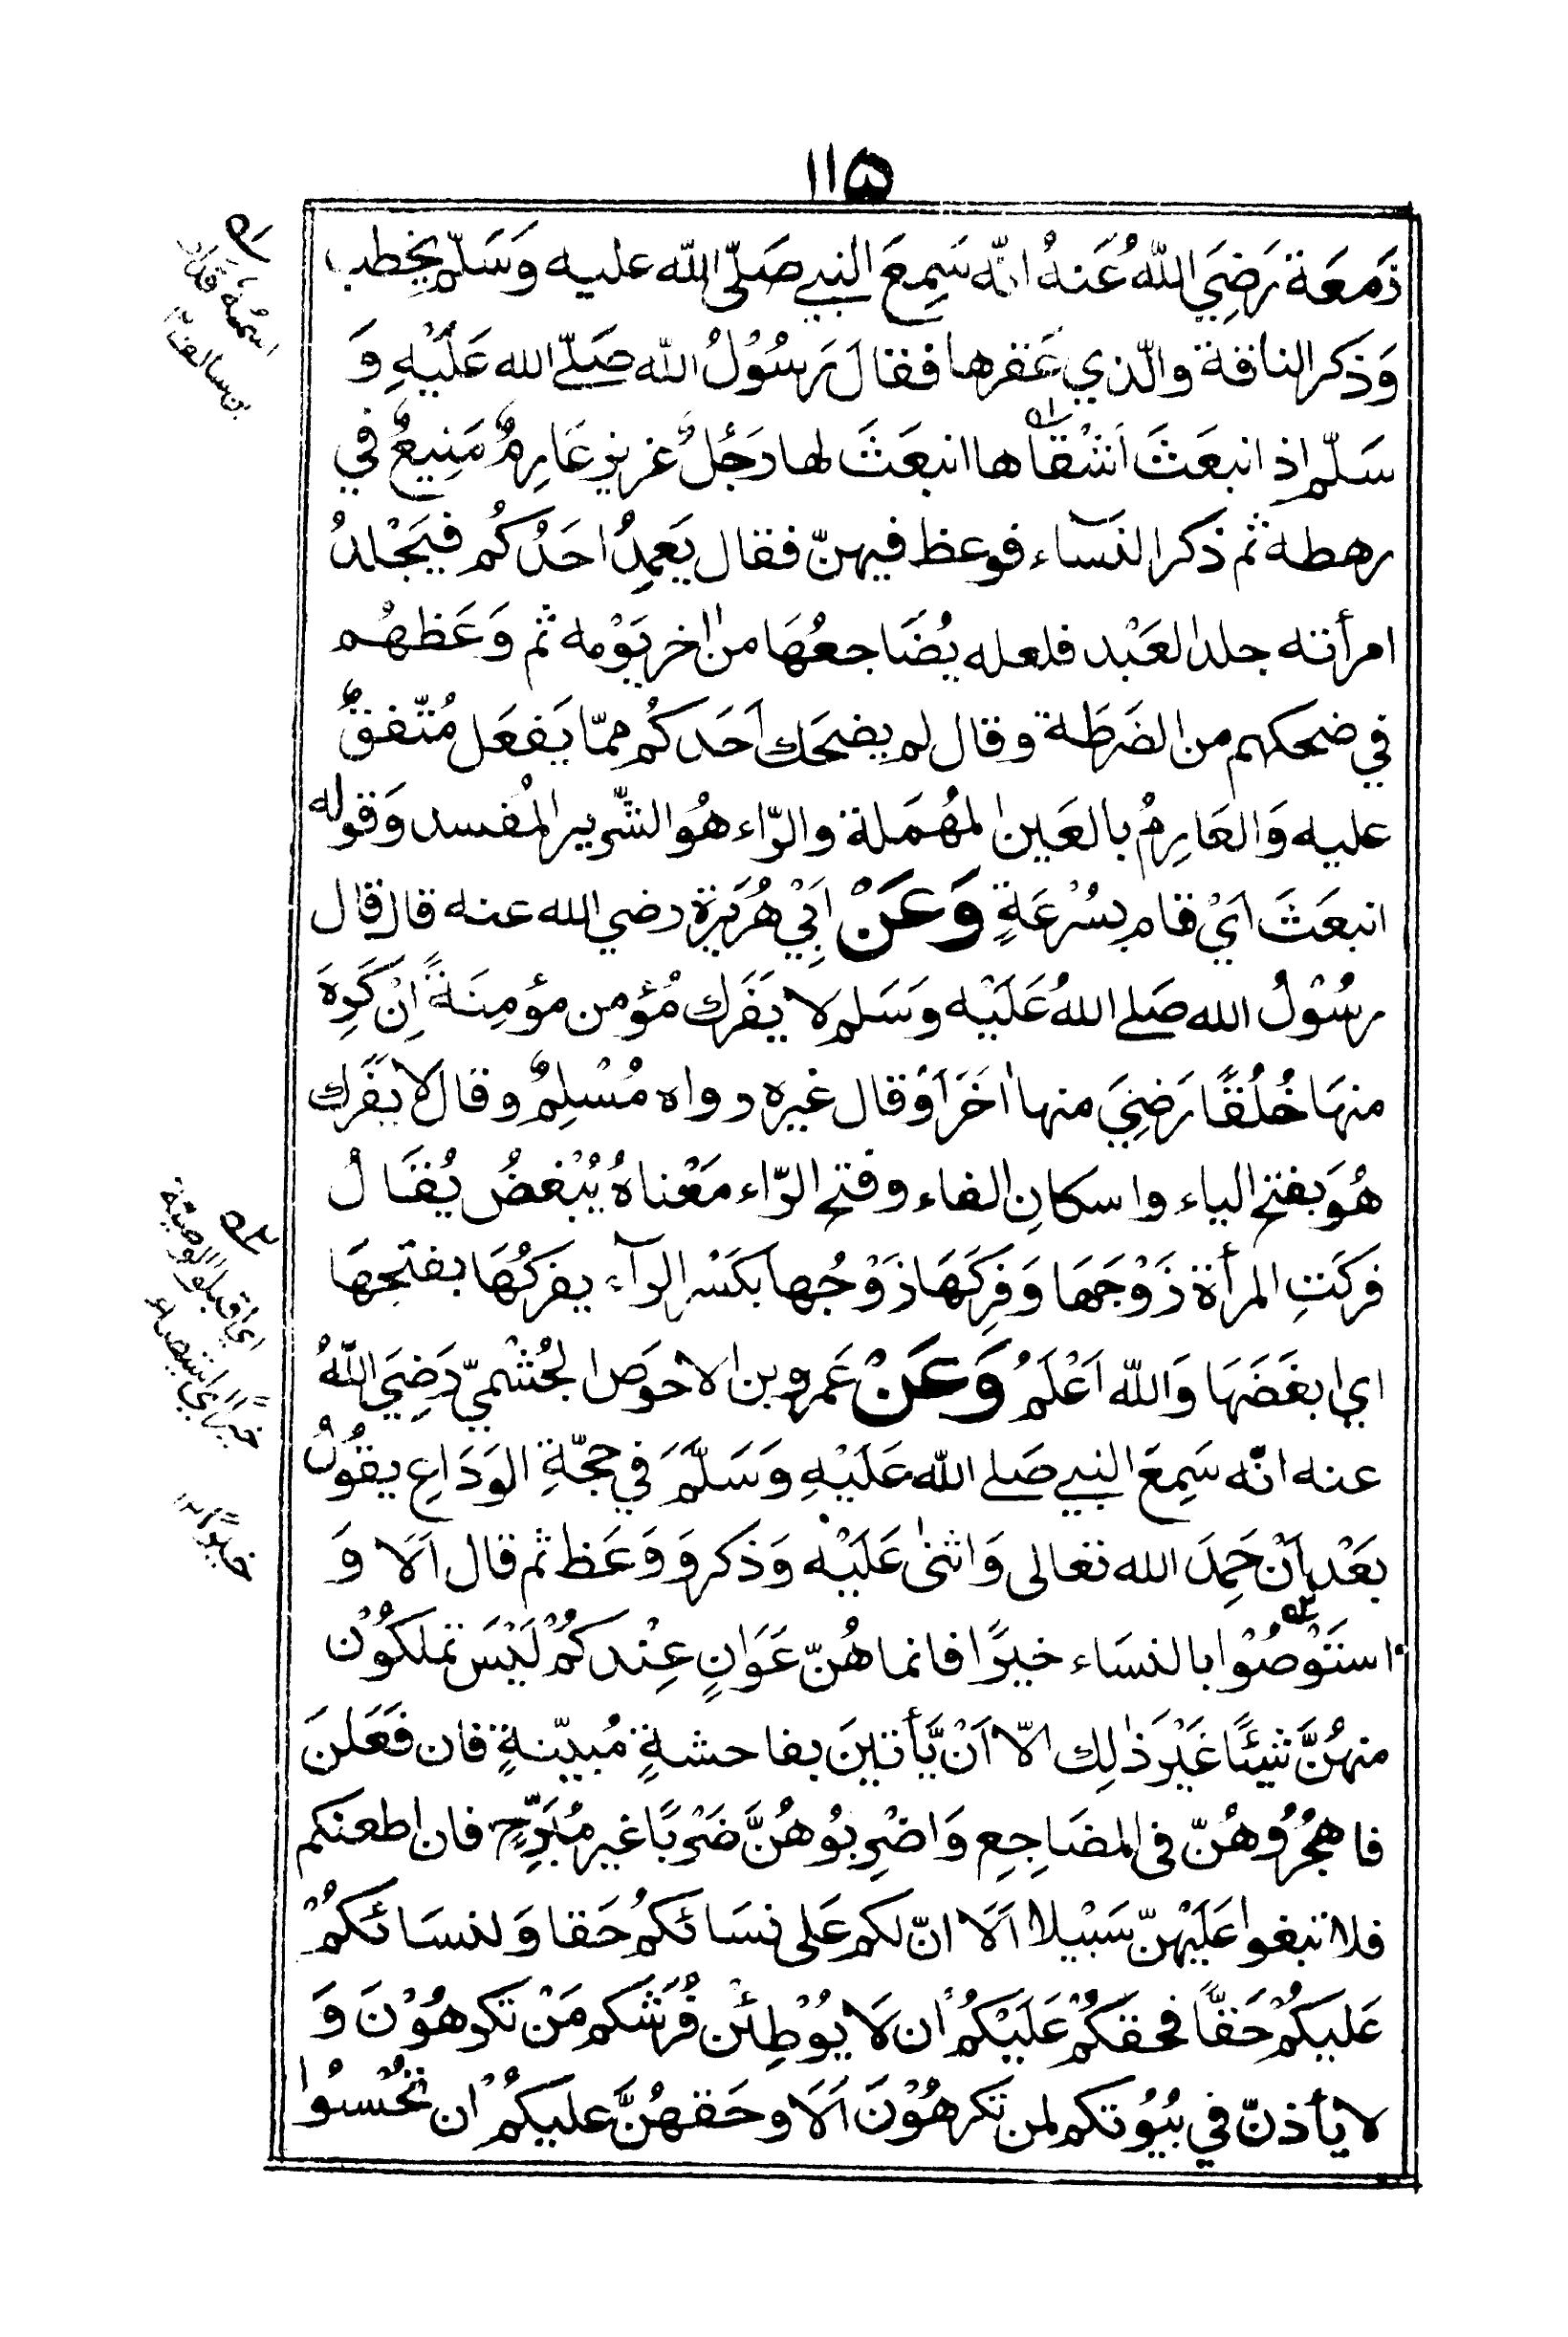 ١١۵
زَمعَة رَضِيَ اللّٰهُ عَنهُ انّه سَمِعَ النبي صَلّى اللّه عليه وَسَلّم يخِطب
وَذَكر الناقة والّذي عَقرها فقالَ رَسُوْلُ اللّه صَلّے الله عَلَيْهِ وَ
سَلّم إذ انبعَثَ اَشْقَاها انبعَثَ لها رَجُلٌ عزيز عَارِمٌ مَنِيعٌ في
رهطه ثم ذَكر النسَاء فوعظ فيهنّ فقال يَعمِدُ احَدُكُم فيَجْلدُ
امرأته جلد العَبْد فلعله يُضَاجعُهَا من اٰخر يَوْمه ثم وَعَظهُم
في ضحكهم من الضَرطَة وقال لم يضحَك اَحَدكُم ممّا يَفعَل مُتّفقٌ
عليه وَالعَارِمُ بالعَين المهُمَلة والرّاء هُو الشّرير المُفسد وَقوله
انبعَثَ اَيْ قام بسُرْعَةٍ وَعَنْ اَبِيْ هُرَيْرَة رضي الله عنه قال قال
رسُوْلُ الله صَلے اللهُ عَلَيْه وَسَلم لا يَفَرك مُؤمن مؤمِنَةً اِنْ كَرِهَ
منهَا خُلُقًا رَضِيَ منها اٰخَرَ اَوْقال غيره رواه مُسْلِمٌ وقال لَا يفَرك
هُوَ بفتح الياء واسكانِ الفاء وفتح الرّاء مَعْناهُ يُبْغضُ يُقَالُ
فركَتِ المرأة زَوْجَهَا وَفِركَهَا زَوْجُها بكَسْر الرآء يفركُهَا بفتحِهَا
اي ابغَضَهَا وَاللّه اَعْلَمُ وَعَنْ عَمرو بن الاحوَص الجُشْميّ رَضِيَ اللّٰهُ
عنه انّه سَمِعَ النبي صَلے اللّه عَلَيْهِ وَسَلَّمَ في حجّةِ الوَدَاعِ يقُوْلُ
بَعْد اَنْ حَمِدَ الله تعالى وَاثنىٰ عَلَيْه وَذكر وَوَعَظ ثم قال اَلَا وَ
استَوْصُوْا بالنسَاء خيرًا فانما هُنّ عَوَانٍ عِنْدكُمْ لَيْسَ تملكُوْن
منهُنَّ شيئًا غَيْرَ ذٰلِك الّا اَنْ يَّأتينَ بفاحشةٍ مُبيّنةٍ فان فَعَلنَ
فاهجُرُوهُنّ في المضَاجِعِ وَاضْرِبُوهُنَّ ضَرْبًا غير مُبَرِّحٍ فان اطعنكم
فلا تبغوا عَلَيْهنّ سَبْيلا اَلَا انّ لكم عَلى نسَائكُمْ حَقا وَلنسَائكُمْ
عَليكُمْ حَقًّا فحقكُمْ عَلَيْكُمْ ان لَا يُوْطِئْن فُرُشَكم مَنْ تكرهُوْنَ وَ
لا يأذنّ في بيُوُتكم لمن تكرهُوْنَ اَلَا وحَقهُنَّ عليكُمْ ان تحُسنُوا
اسمُهُ قدار
بن سالف
اي اقبلوا الوصية
خيرا